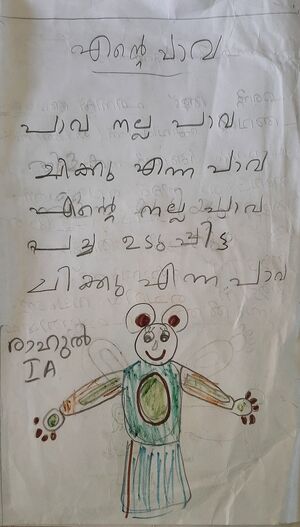 എന്റെ പാവ
പാവ നല്ല പാവ
ചിക്കു എന്ന പാവ
എന്റെ നല്ല പാവ
പച്ച ഉടുപ്പിട്ട
ചിക്കു എന്ന പാവ
രാഹുൽ
I A